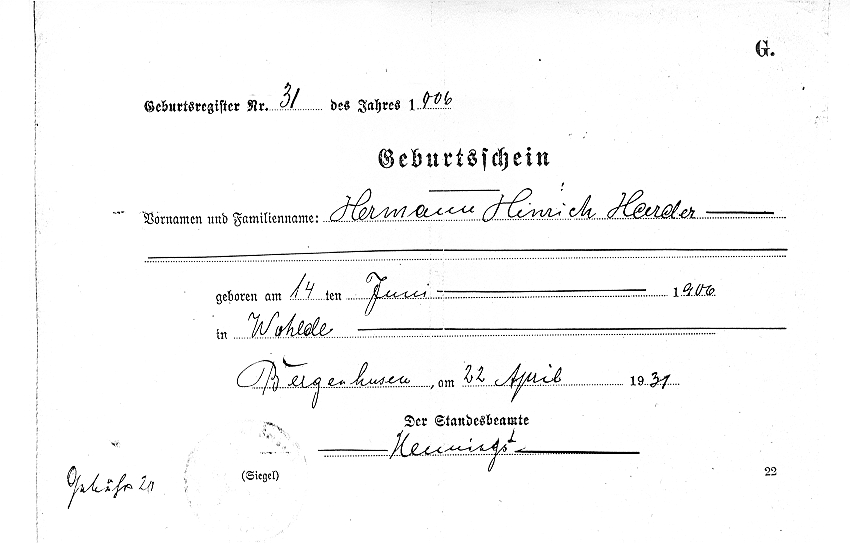 G.
Geburtsregister Nr. 31 des Jahres 1906
Geburtsschein
Vornamen und Familienname: Hermann Hinrich Harder
geboren am 14 ten Juni 1906
in Wohlde
Bergenhusen, am 22 April 1931
Der Standesbeamte
(Siegel)
22
Gebühr